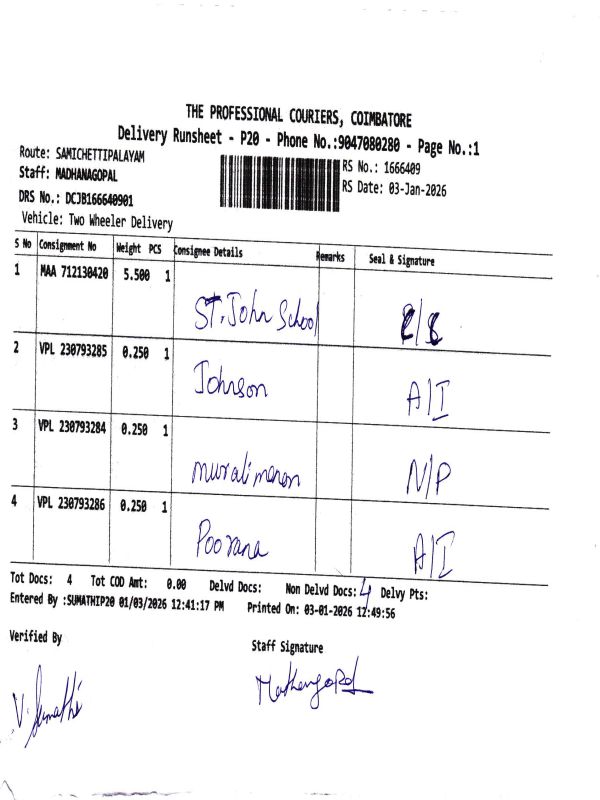 THE PROFESSIONAL COURIERS, COIMBATORE
Delivery Runsheet - P20 - Phone No.:9047080280 - Page No.:1
Route: SAMICHETTIPALAYAM
Staff: MADHANAGOPAL
RS No.: 1666409
RS Date: 03-Jan-2026
DRS No.: DCJB166640901
Vehicle: Two Wheeler Delivery
S No Consignment No Weight PCS Consignee Details Remarks Seal & Signature
1 MAA 712130420 5.500 1 St. John School
2 VPL 230793285 0.250 1 Johnson A/I
3 VPL 230793284 0.250 1 muralimenon N/P
4 VPL 230793286 0.250 1 Poorana A/I
Tot Docs: 4 Tot COD Amt: 0.00 Delvd Docs: Non Delvd Docs: 4 Delvy Pts:
Entered By :SUMATHIP20 01/03/2026 12:41:17 PM Printed On: 03-01-2026 12:49:56
Verified By Staff Signature
V. Sumathi